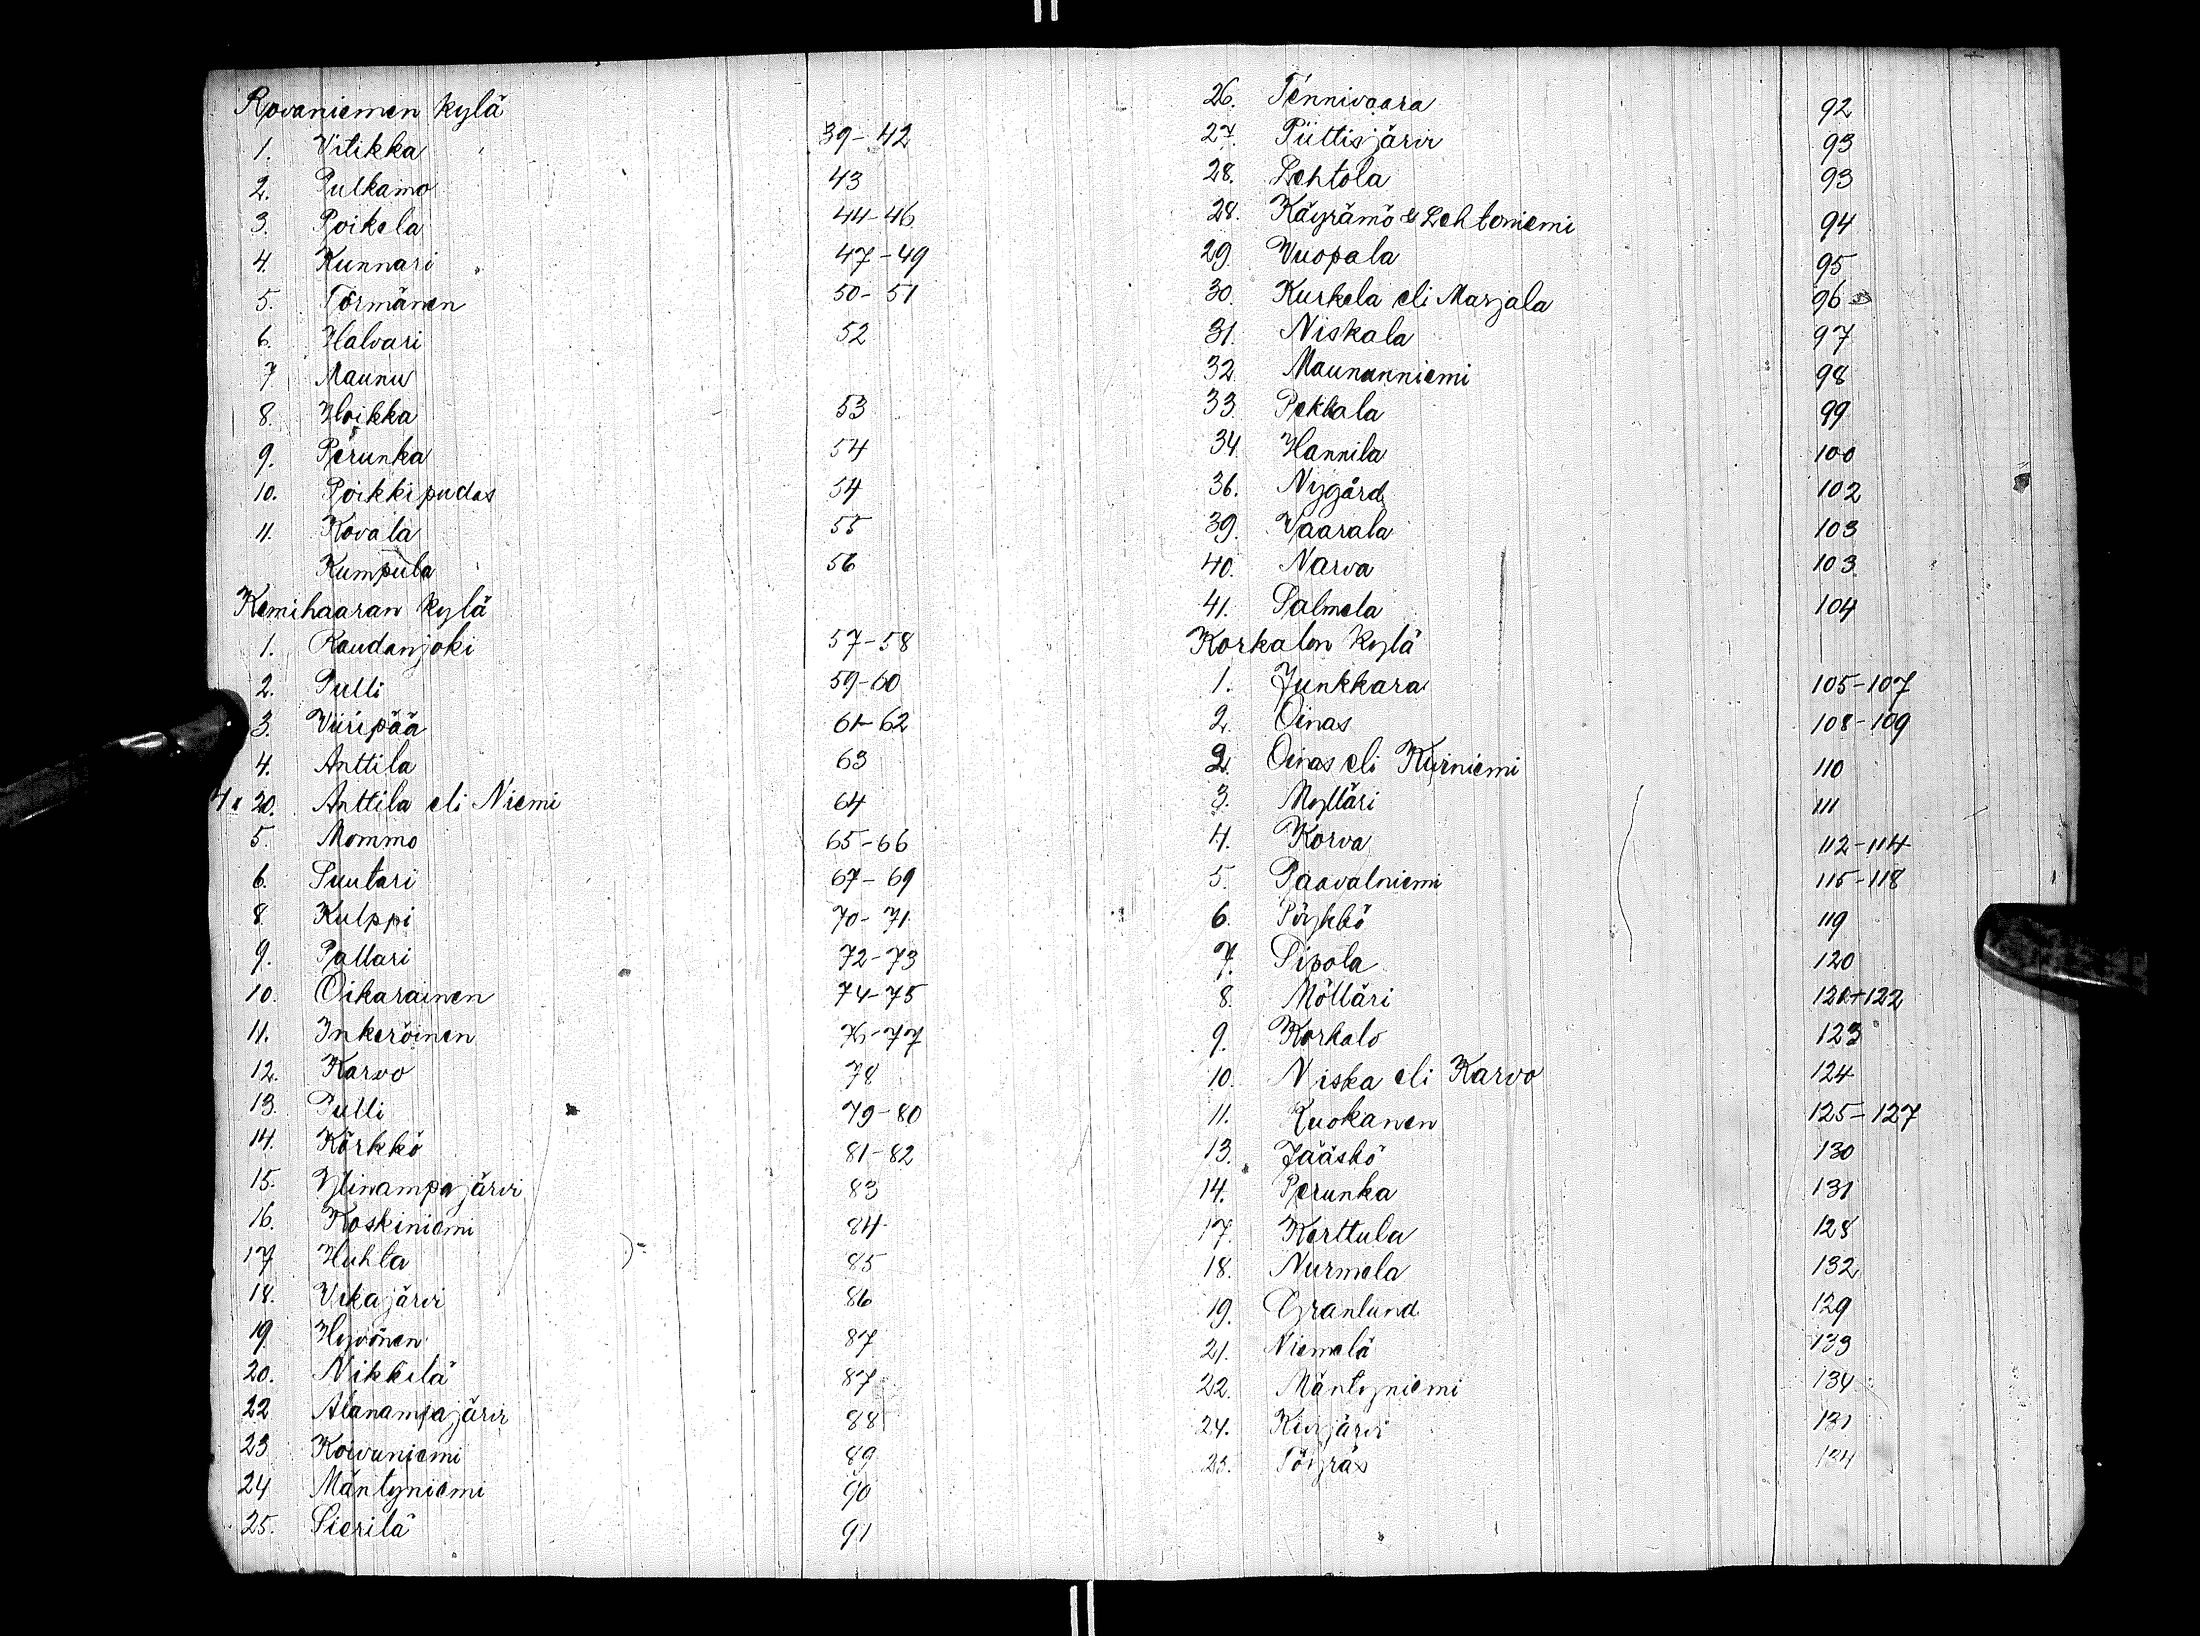 Rovaniemen kylä
1. Vitikka 39-42
2. Pulkamo 43
3. Poikela 44-46
4. Kunnari 47-49
5. Törmänen 50-51
6. Halvari 52
7 Maunu
8. Hoikka 53
9. Perunka 54
10. Poikkipudas 54
11. Kovala 55
Kumpula 56
Kemihaaran kylä
1. Raudanjoki 57-58
2. Pulli 59-60
3. Viiripää 61-62
4. Anttila 63
4 a 20. Anttila eli Niemi 64
5. Mommo 65-66
6. Suutari 67-69
8. Kulppi 70-71
9. Pallari 72-73
10. Oikarainen 74-75
11. Inkeröinen 76-77
12. Karvo 78
13. Pulli 79-80
14. Körkkö 81-82
15. Ylinampajärvi 83
16. Koskiniemi 84
17 Huhta 85
18. Vikajärvi 86
19. Hyvönen 87
20. Nikkilä 87
22 Alanampajärvi 88
23 Koivuniemi 89
24 Mäntyniemi 90
25. Sierilä 91
26. Tennivaara 92
27. Piittisjärvi 93
28. Lehtola 93
28. Käyrämö & Lehtoniemi 94
29. Vuopala 95
30. Kurkela eli Marjala 96
31. Niskala 97
32. Maununniemi 98
33. Pekkala 99
34. Hannila 100
36. Nygård 102
39. Vaarala 103
40. Narva 103
41. Salmela 104
Korkalon kylä
1. Junkkara 105-107
2. Oinas 108-109
2. Oinas eli Kurniemi 110
3. Mylläri 111
4. Korva 112-114
5. Paavalniemi 115-118
6. Pöykkö 119
7. Sipola 120
8. Mölläri 121+122
9. Korkalo 123
10. Niska eli Karvo 124
11. Ruokanen 125-127
13. Jääskö 130
14. Perunka 131
17. Kerttula 128
18. Nurmela 132
19. Granlund 129
21. Niemelä 133
22. Mäntyniemi 134
24. Kivijärvi 131
23. Töyräs 134